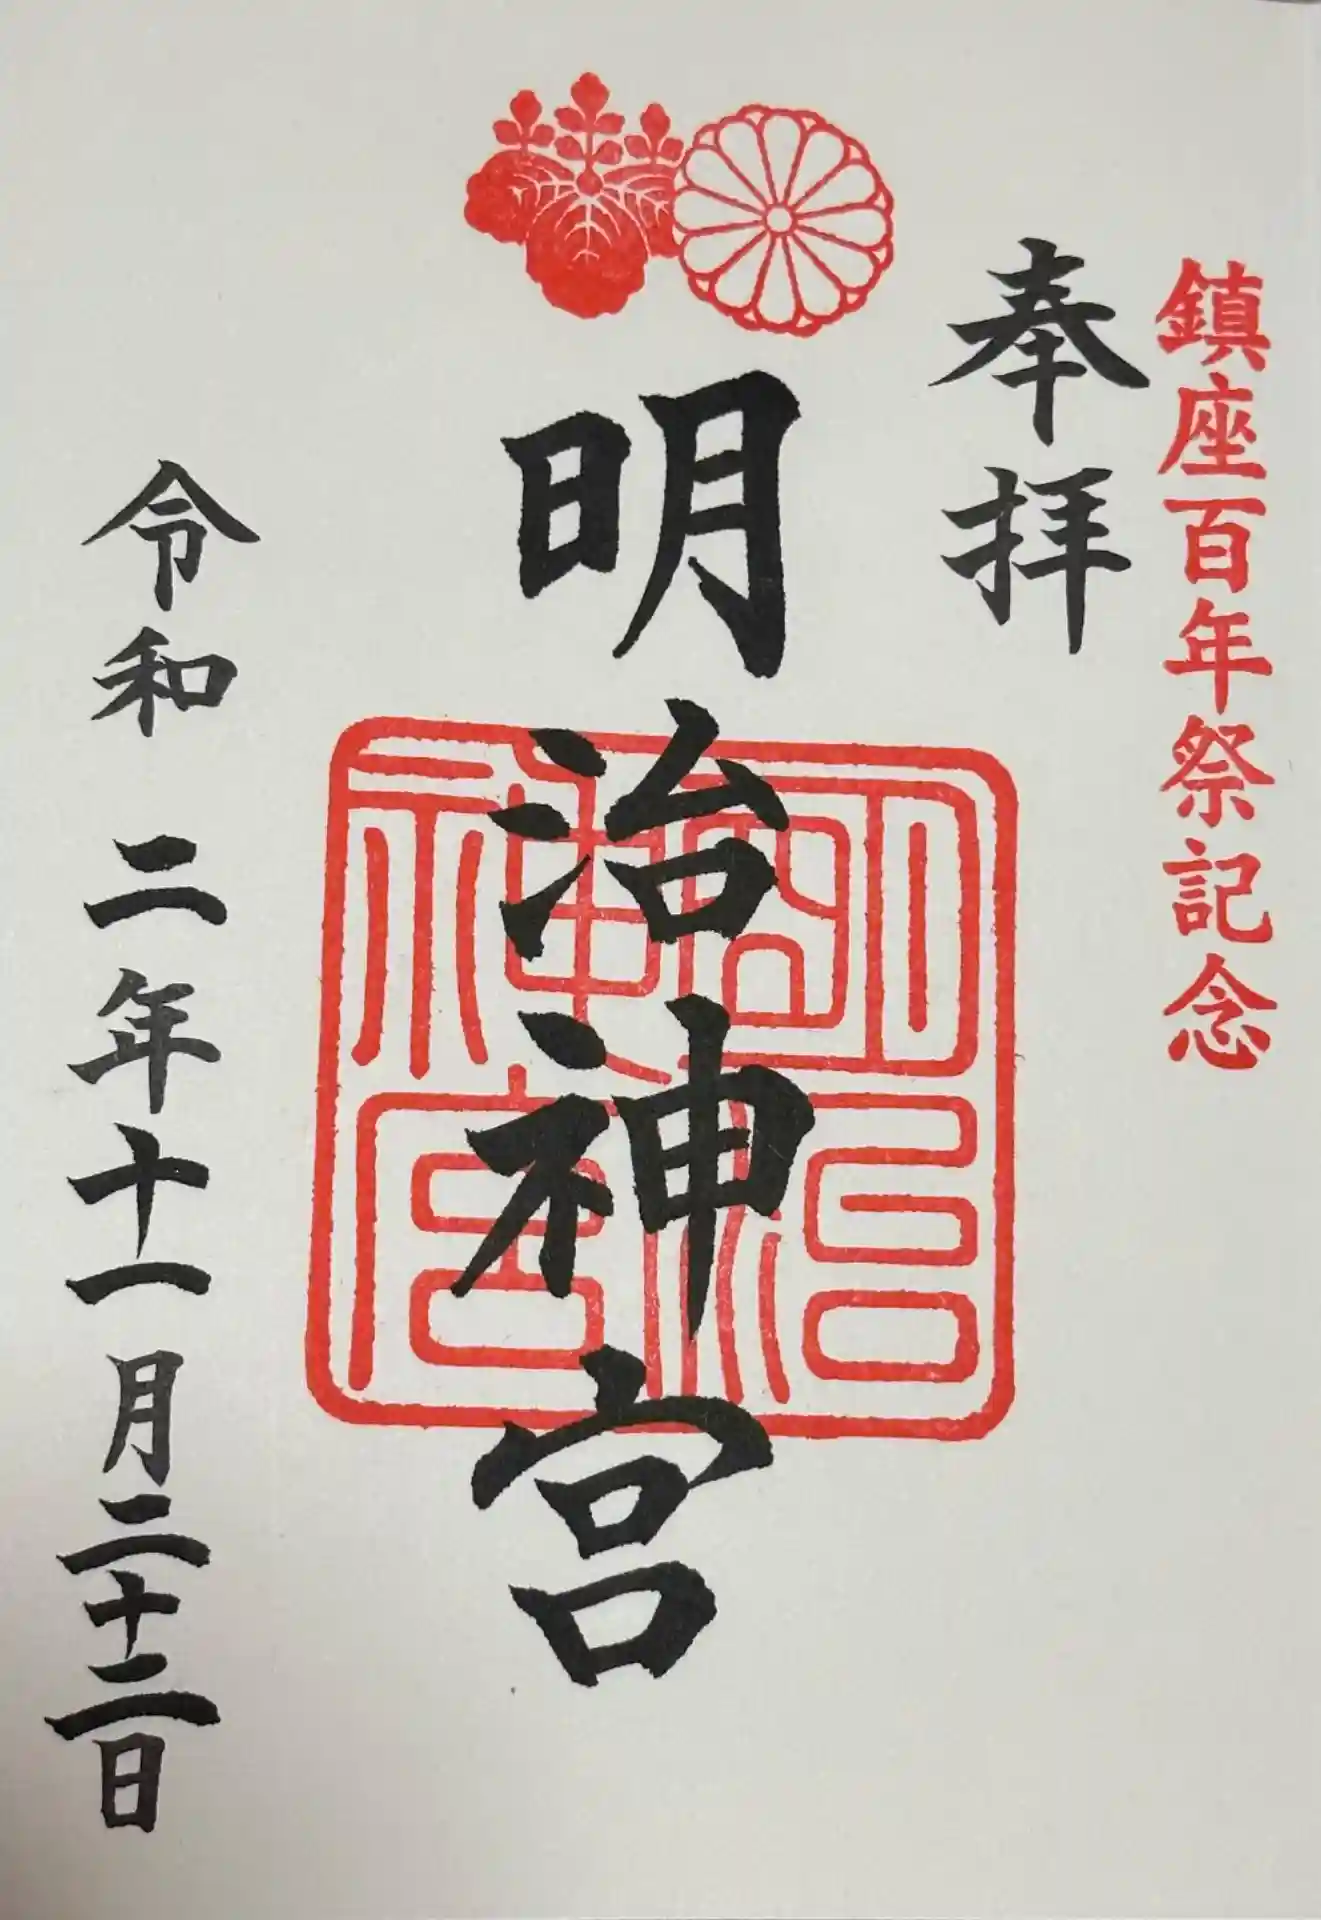 鎮座百年祭記念
奉拝
明治神宮
明治神宮
令和 二年十一月二十二日